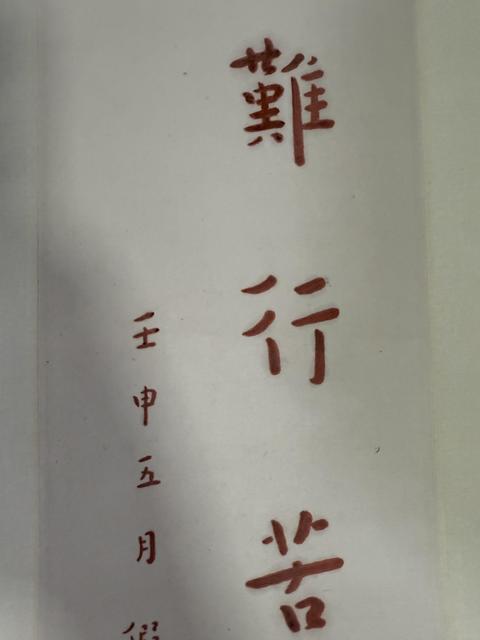 難行苦
壬申五月